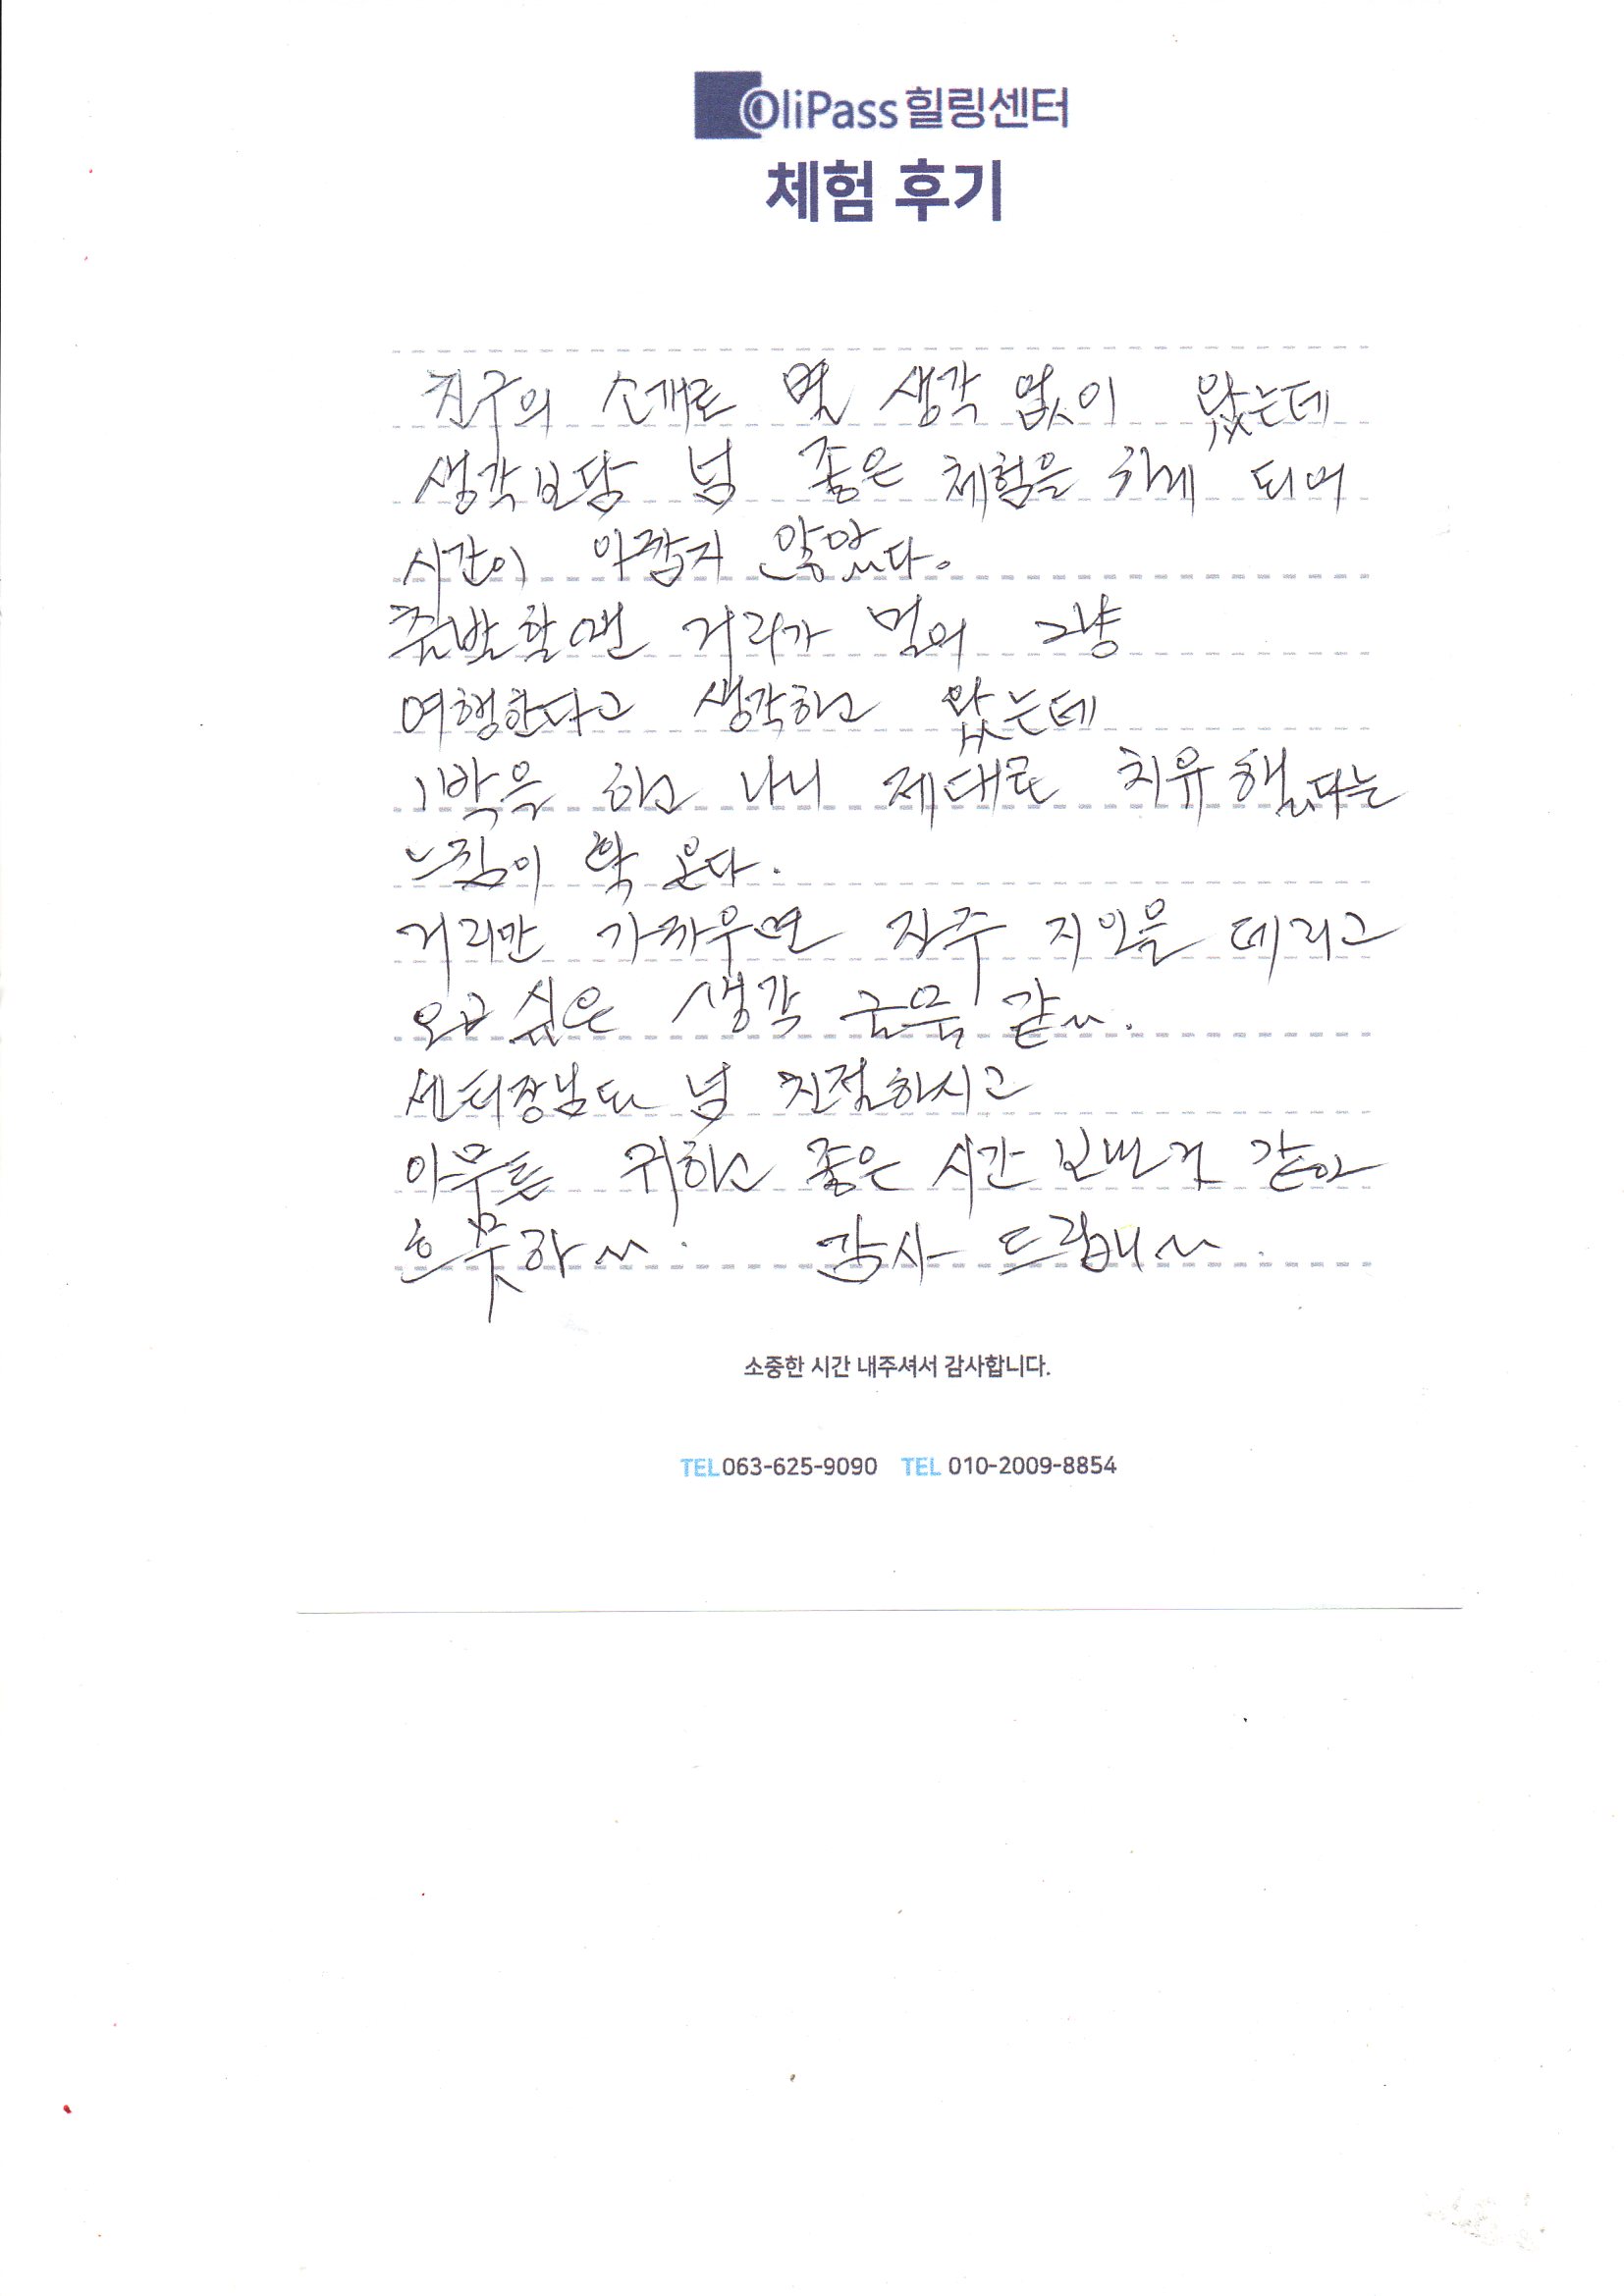 OliPass 힐링센터
체험 후기
친구의 소개로 별 생각 없이 왔는데
생각보담 넘 좋은 체험을 하게 되어
시간이 아깝지 않았다.
출발할땐 거리가 멀어 그냥
여행한다고 생각하고 왔는데
1박을 하고 나니 제대로 치유했다는
느낌이 확 온다.
거리만 가까우면 자주 지인을 데리고
오고 싶은 생각 굴뚝 같~.
센터장님도 넘 친절하시고
아무튼 귀하고 좋은 시간 보낸것 같아
흐뭇하~. 감사 드립니~.
소중한 시간 내주셔서 감사합니다.
TEL 063-625-9090 TEL 010-2009-8854